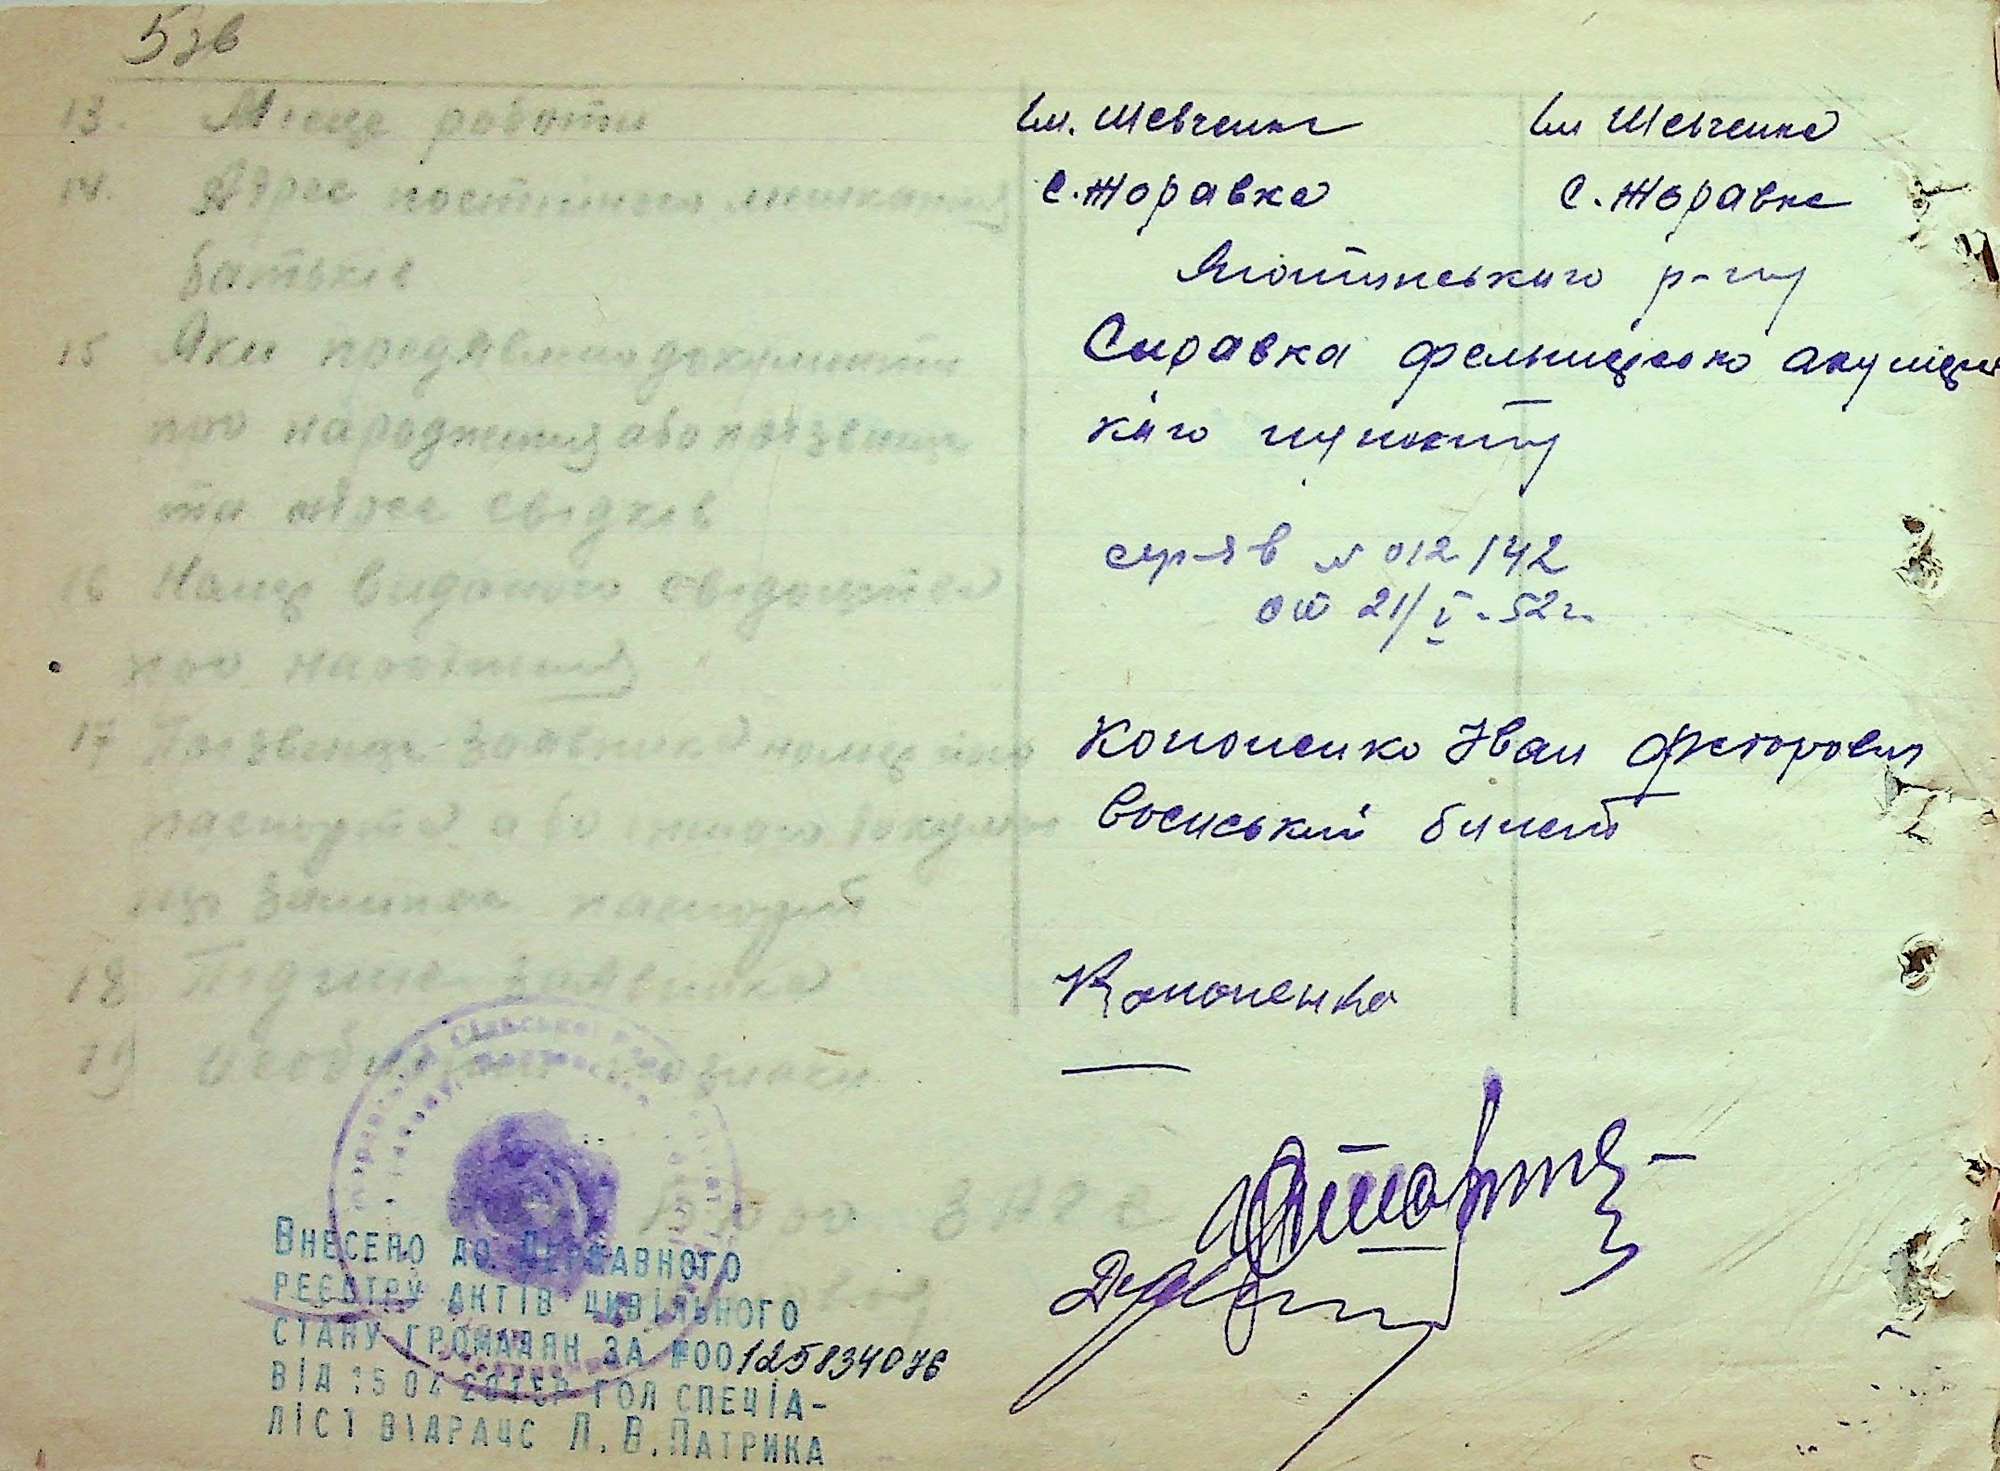 5зв
13. Місце роботи ім. Шевченка ім Шевченка
14. Адрес постійного мешкання с. Жоравка с. Жоравка
батьків Яготинського р-ну
15 Яки предявлено документи Справка фельшерсько акушерс
про народження або прізвища кого пункту
та адрес свідків
16 Номер виданого свідоцтва серія в № 012142
про народження от 21/V-52 г.
17 Прізвище заявника номер його Кононенко Іван Федорович
паспорта або іншого докумен воєнський билет
що заміняє паспорт
18 Підпис заявника Кононенко
19 Особливі позначки —
Бюро ЗАГС
Внесено до Державного
реєстру актів цивільного
стану громадян за №00125834076
від 15 04 гол спеціа-
ліст відрацс Л. В. Патрика